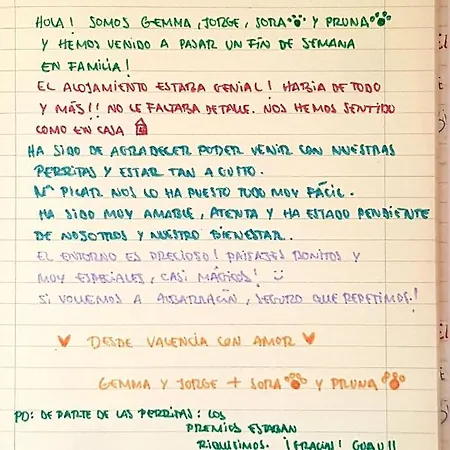 HOLA! SOMOS GEMMA, JORGE, SORA Y PRUNA
Y HEMOS VENIDO A PASAR UN FIN DE SEMANA
EN FAMILIA!
EL ALOJAMIENTO ESTABA GENIAL! HABIA DE TODO
Y MÁS!! NO LE FALTABA DETALLE. NOS HEMOS SENTIDO
COMO EN CASA
HA SIDO DE AGRADECER PODER VENIR CON NUESTRAS
PERRITAS Y ESTAR TAN A GUSTO.
Mª PILAR NOS LO HA PUESTO TODO MUY FÁCIL.
HA SIDO MUY AMABLE, ATENTA Y HA ESTADO PENDIENTE
DE NOSOTROS Y NUESTRO BIENESTAR.
EL ENTORNO ES PRECIOSO! PAISAJES BONITOS Y
MUY ESPECIALES, CASI MÁGICOS! :)
SI VOLVEMOS A ALBARRACÍN, SEGURO QUE REPETIMOS!
♥ DESDE VALENCIA CON AMOR ♥
GEMMA Y JORGE + SORA Y PRUNA
PD: DE PARTE DE LAS PERRITAS: LOS
PREMIOS ESTABAN
RIQUISIMOS. ¡GRACIAS! GUAU!!